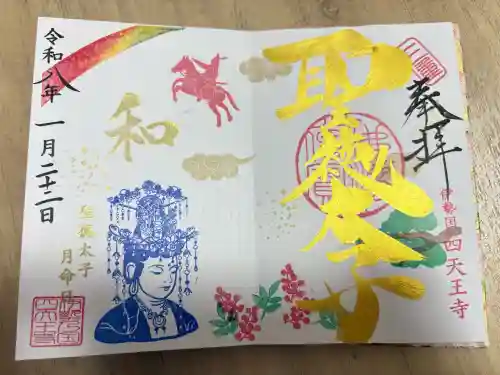 奉拝
聖徳太子
伊勢国 四天王寺
和
聖徳太子
月命日
令和八年
一月二十二日